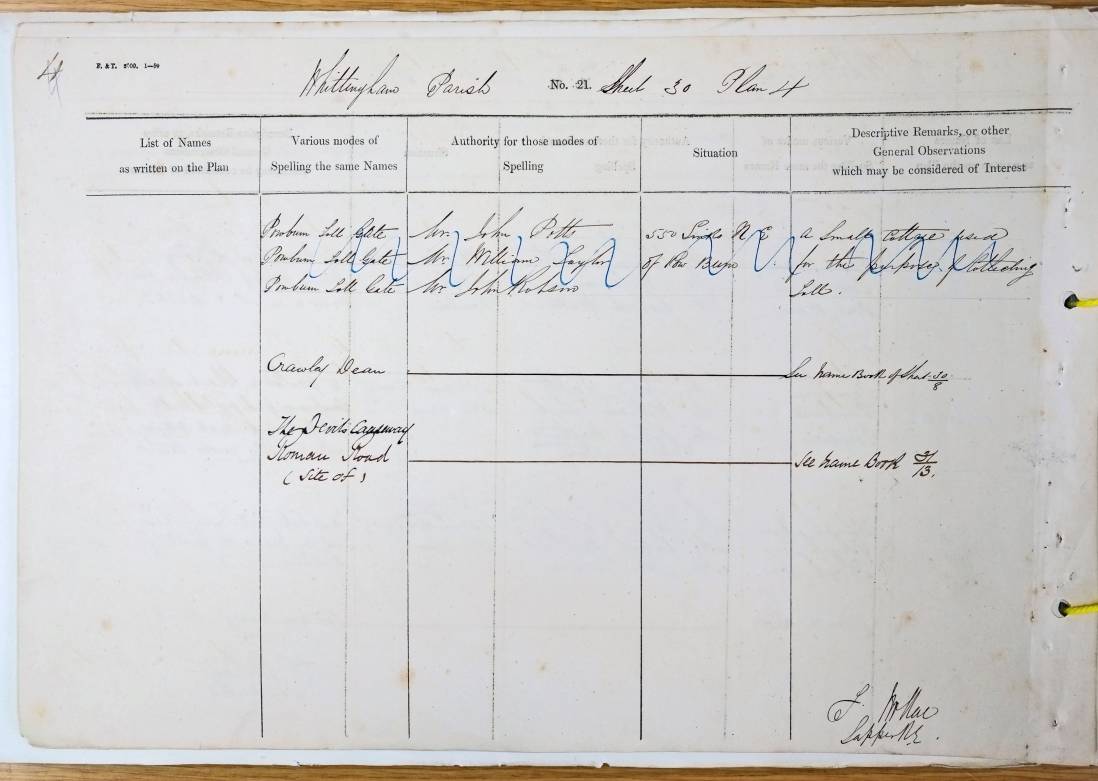 4
F. & T. 2700. 1—59
Whittingham Parish No. 21. Sheet 30 Plan 4
List of Names
as written on the Plan
Various modes of
Spelling the same Names
Authority for those modes of
Spelling
Situation
Descriptive Remarks, or other
General Observations
which may be considered of Interest
Powburn Toll Gate Mr. John Potts 550 Links N E A Small Cottage used
Powburn Toll Gate Mr. William Taylor of Pow Burn for the purpose of Collecting
Powburn Toll Gate Mr John Robson Toll.
Crawley Dean See Name Book of Sheet 30/8
The Devil's Causeway
Roman Road See Name Book 31/13.
(Site of)
Sapper R.E.